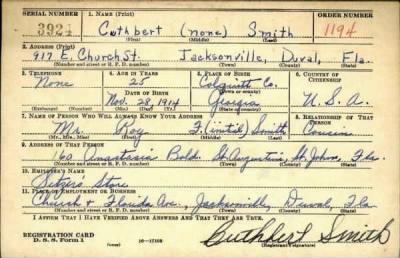 SERIAL NUMBER 1. NAME (Print) ORDER NUMBER
3924 Cuthbert (none) Smith 1194
(First) (Middle) (Last)
2. ADDRESS (Print)
917 E. Church St. Jacksonville, Duval, Fla.
(Number and street or R. F. D. number) (Town) (County) (State)
3. TELEPHONE 4. AGE IN YEARS 5. PLACE OF BIRTH 6. COUNTRY OF CITIZENSHIP
None 25 Colquitt Co.
DATE OF BIRTH (Town or county)
Nov. 28, 1914 Georgia U.S.A.
(Exchange) (Number) (Mo.) (Day) (Yr.) (State or country)
7. NAME OF PERSON WHO WILL ALWAYS KNOW YOUR ADDRESS 8. RELATIONSHIP OF THAT PERSON
Mr. Roy Smith Cousin
(Mr., Mrs., Miss) (First) (Middle) (Last)
9. ADDRESS OF THAT PERSON
Anastasia Blvd. St. Augustine, St. Johns, Fla.
(Number and street or R. F. D. number) (Town) (County) (State)
10. EMPLOYER'S NAME
Setzer's Store
11. PLACE OF EMPLOYMENT OR BUSINESS
Church & Florida Ave., Jacksonville, Duval, Fla.
(Number and street or R. F. D. number) (Town) (County) (State)
I AFFIRM THAT I HAVE VERIFIED ABOVE ANSWERS AND THAT THEY ARE TRUE.
REGISTRATION CARD
D. S. S. Form 1 16—17105 Cuthbert Smith
(Registrant's signature)